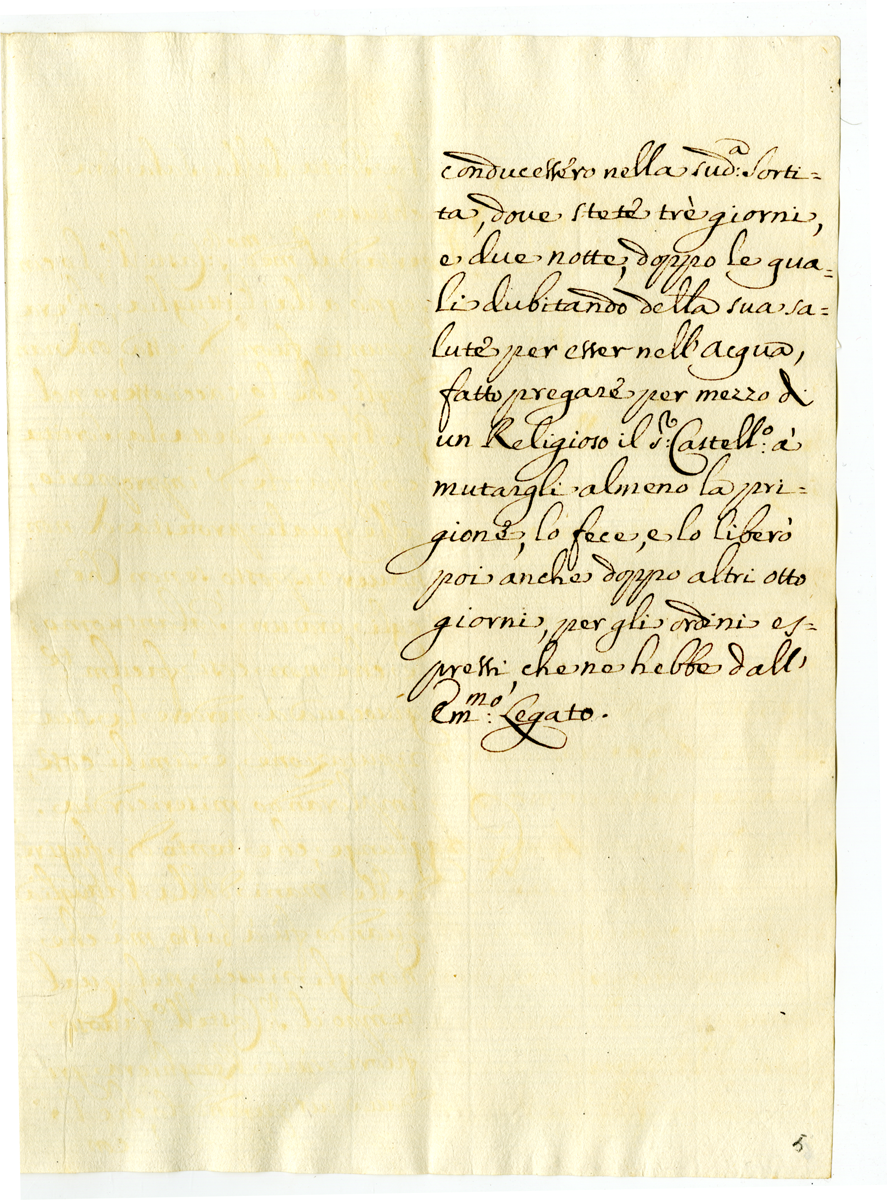 conducessero nella sud.ᵃ Sorti=
ta, dove stete trè giorni,
e due notte, doppo le qua=
li dubitando della sua sa=
lute per esser nell'acqua,
fatto pregare per mezzo di
un Religioso il S.ʳ Castell.º à
mutargli almeno la pri=
gione, lo fece, e lo liberò
poi anche doppo altri otto
giorni, per gli ordini es=
pressi, che ne hebbe dall'
Em.ᵐᵒ Legato.
5